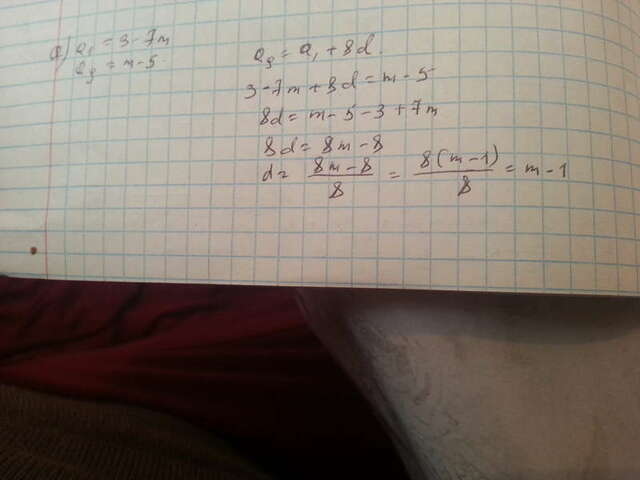 a₁ = 3 - 7m
a₉ = m - 5
a₉ = a₁ + 8d.
3 - 7m + 8d = m - 5
8d = m - 5 - 3 + 7m
8d = 8m - 8
d = (8m - 8)/8 = 8(m - 1)/8 = m - 1